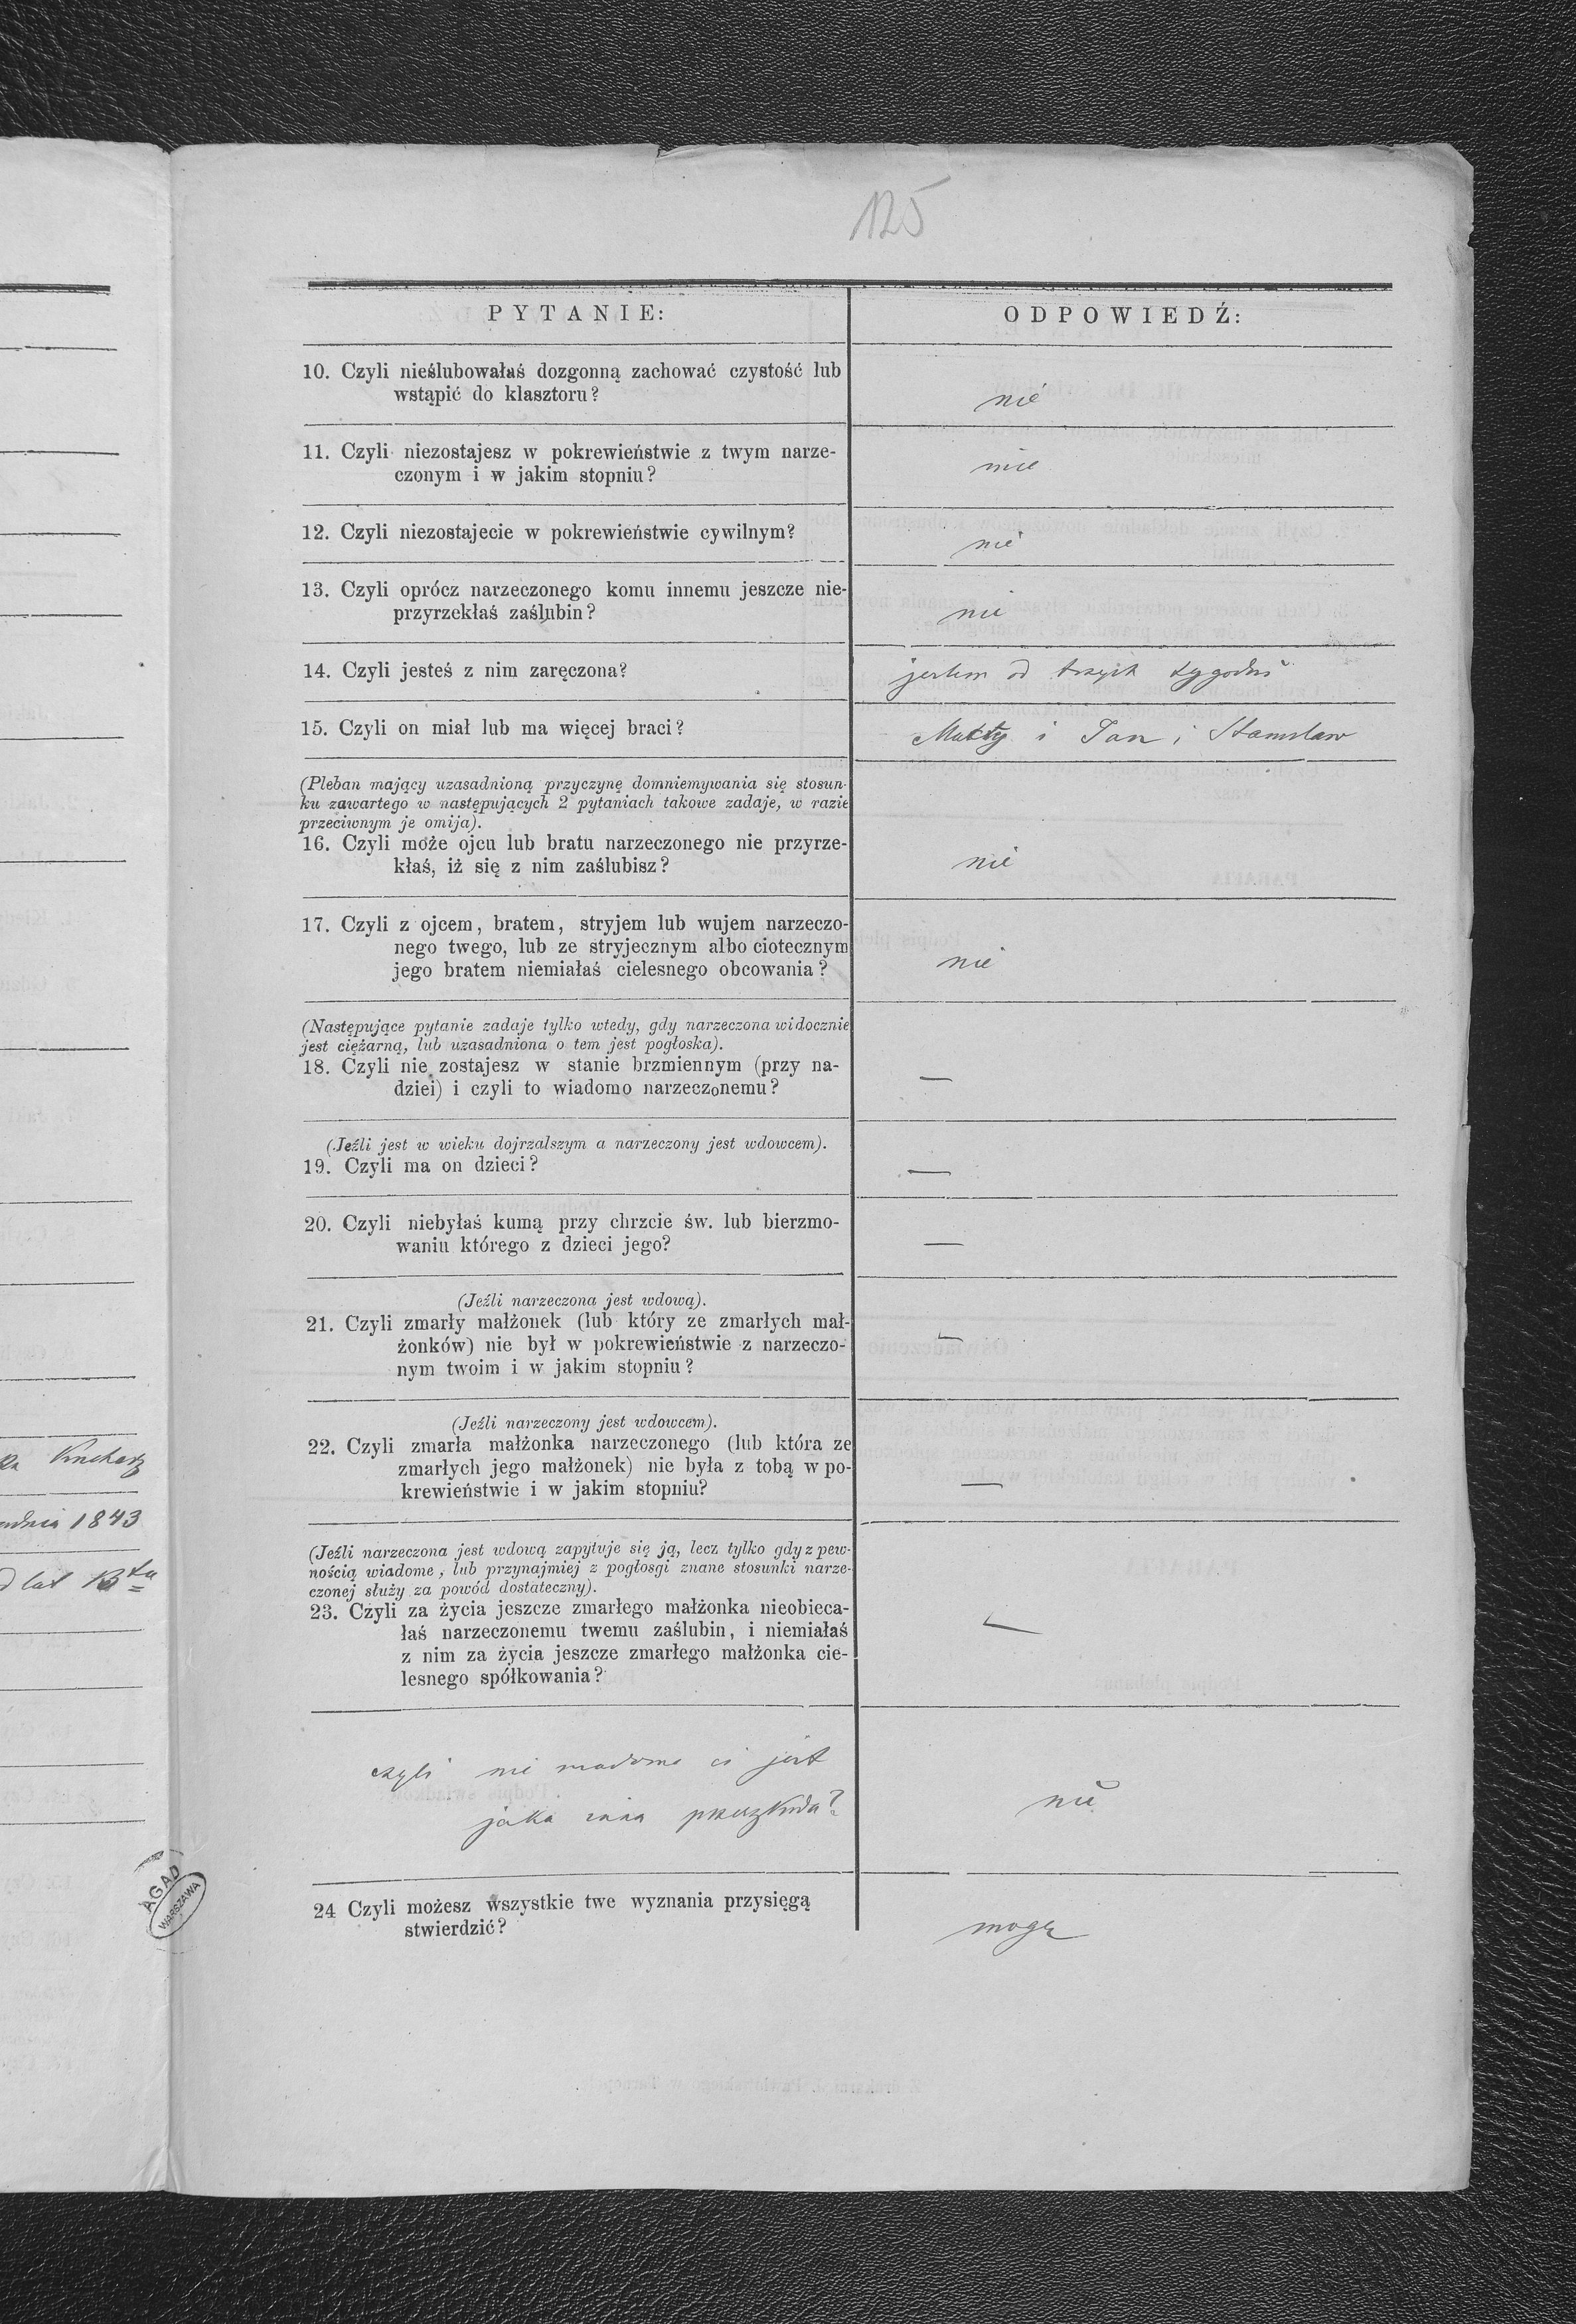 125
PYTANIE:
ODPOWIEDŹ:
10. Czyli nieślubowałaś dozgonną zachować czystość lub
wstąpić do klasztoru?
nie
11. Czyli niezostajesz w pokrewieństwie z twym narze-
czonym i w jakim stopniu?
nie
12. Czyli niezostajecie w pokrewieństwie cywilnym?
nie
13. Czyli oprócz narzeczonego komu innemu jeszcze nie-
przyrzekłaś zaślubin?
nie
14. Czyli jesteś z nim zaręczona?
jestem od trzech tygodni
15. Czyli on miał lub ma więcej braci?
i Jan i Stanisław
(Pleban mający uzasadnioną przyczynę domniemywania się stosun-
ku zawartego w następujących 2 pytaniach takowe zadaje, w razie
przeciwnym je omija).
16. Czyli może ojcu lub bratu narzeczonego nie przyrze-
kłaś, iż się z nim zaślubisz?
nie
17. Czyli z ojcem, bratem, stryjem lub wujem narzeczo-
nego twego, lub ze stryjecznym albo ciotecznym
jego bratem niemiałaś cielesnego obcowania?
nie
(Następujące pytanie zadaje tylko wtedy, gdy narzeczona widocznie
jest ciężarną, lub uzasadniona o tem jest pogłoska).
18. Czyli nie zostajesz w stanie brzmiennym (przy na-
dziei) i czyli to wiadomo narzeczonemu?
—
(Jeźli jest w wieku dojrzalszym a narzeczony jest wdowcem).
19. Czyli ma on dzieci?
—
20. Czyli niebyłaś kumą przy chrzcie św. lub bierzmo-
waniu którego z dzieci jego?
—
(Jeźli narzeczona jest wdową).
21. Czyli zmarły małżonek (lub który ze zmarłych mał-
żonków) nie był w pokrewieństwie z narzeczo-
nym twoim i w jakim stopniu?
—
(Jeźli narzeczony jest wdowcem).
22. Czyli zmarła małżonka narzeczonego (lub która ze
zmarłych jego małżonek) nie była z tobą w po-
krewieństwie i w jakim stopniu?
—
(Jeźli narzeczona jest wdową zapytuje się ją, lecz tylko gdy z pew-
nością wiadome, lub przynajmiej z pogłosgi znane stosunki narze-
czonej służy za powód dostateczny).
23. Czyli za życia jeszcze zmarłego małżonka nieobieca-
łaś narzeczonemu twemu zaślubin, i niemiałaś
z nim za życia jeszcze zmarłego małżonka cie-
lesnego spółkowania?
—
czyli nie wiadomo ci jest
jaka inna przeszkoda?
nie
24 Czyli możesz wszystkie twe wyznania przysięgą
stwierdzić?
mogę
Kucharz
1843
lat 13tu
AGAD
WARSZAWA